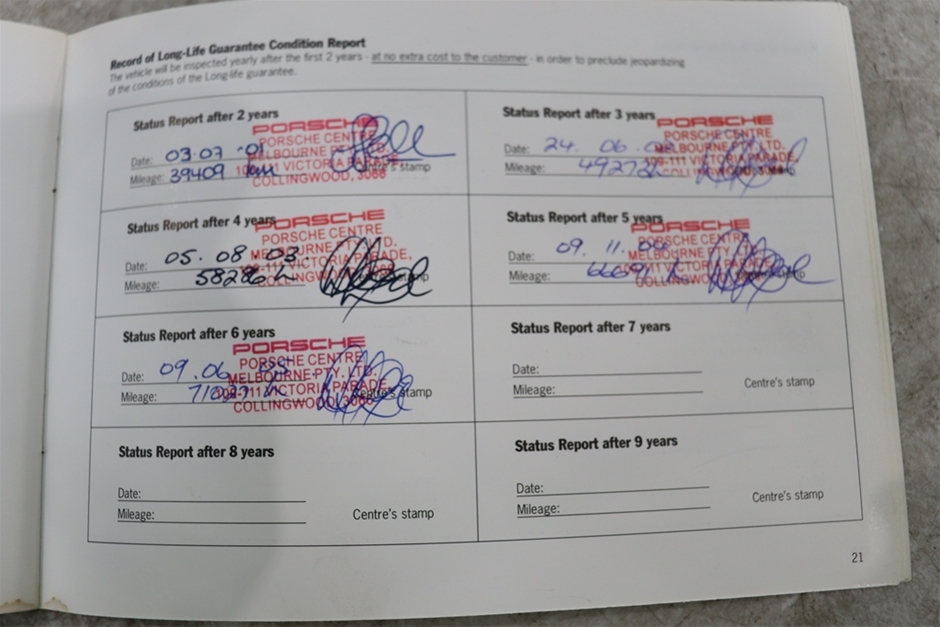 Record of Long-Life Guarantee Condition Report
The vehicle will be inspected yearly after the first 2 years - at no extra cost to the customer - in order to preclude jeopardizing
of the conditions of the Long-life guarantee.
Status Report after 2 years
PORSCHE
PORSCHE CENTRE
MELBOURNE PTY. LTD.
109-111 VICTORIA PARADE
COLLINGWOOD, 3066
Date: 03.07.01
Mileage: 39409 km
Centre's stamp
Status Report after 3 years
PORSCHE
PORSCHE CENTRE
MELBOURNE PTY. LTD.
109-111 VICTORIA PARADE,
COLLINGWOOD, 3066
Date: 24. 06.
Mileage: 49272
Status Report after 4 years
PORSCHE
PORSCHE CENTRE
MELBOURNE PTY. LTD.
109-111 VICTORIA PARADE,
COLLINGWOOD, 3066
Date: 05. 08 03.
Mileage:
Status Report after 5 years
PORSCHE
PORSCHE CENTRE
MELBOURNE PTY. LTD.
109-111 VICTORIA PARADE
COLLINGWOOD, 3066
Date: 09. 11.
Mileage:
Status Report after 6 years
PORSCHE
PORSCHE CENTRE
MELBOURNE PTY. LTD.
109-111 VICTORIA PARADE
COLLINGWOOD, 3066
Date: 09.06
Mileage:
Centre's stamp
Status Report after 7 years
Date:
Mileage:
Centre's stamp
Status Report after 8 years
Date:
Mileage:
Centre's stamp
Status Report after 9 years
Date:
Mileage:
Centre's stamp
21